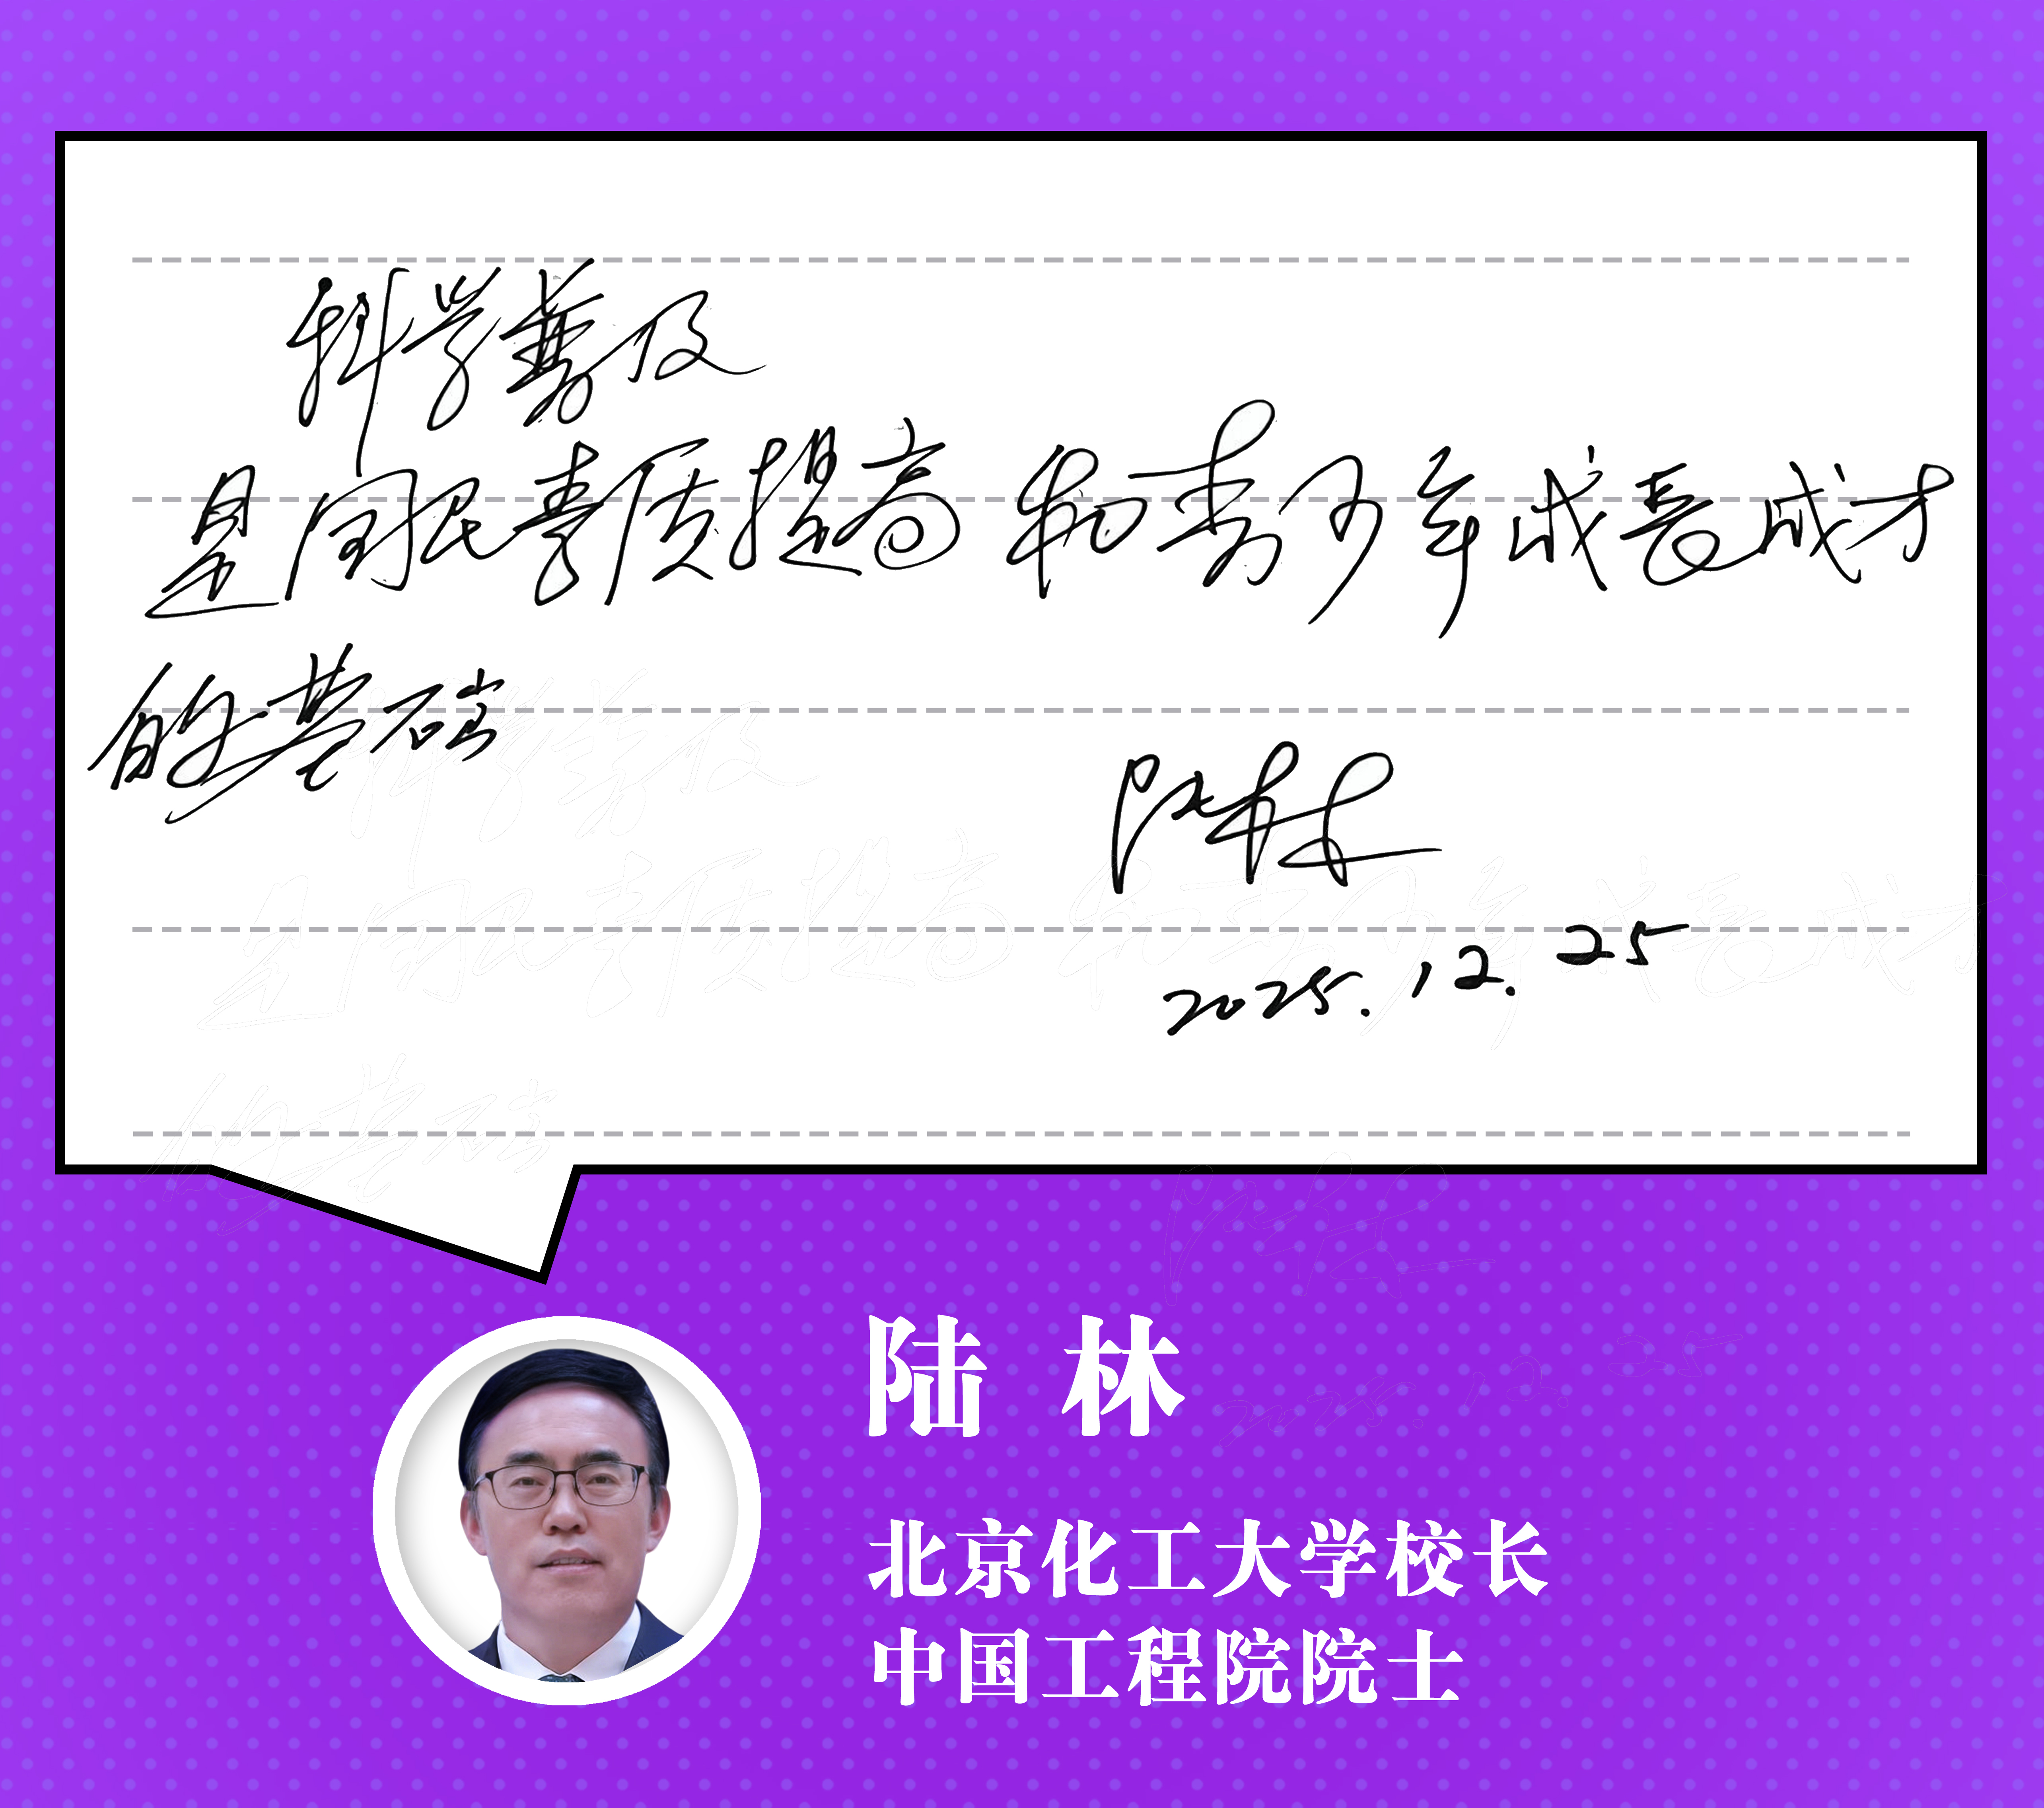 科学普及
是国民素质提高和青少年成长成才
的基础
陆林
2025.12.25
陆 林
北京化工大学校长
中国工程院院士